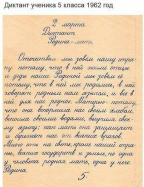 Диктант ученика 5 класса 1962 год
2 марта
Диктант
Родина-мать.
Отечеством мы зовём нашу стра-
ну потому, что в ней жили отцы
и деды наши. Родиной мы зовём её
потому, что в ней мы родились, в ней
говорят родным нам языком, и всё в
ней для нас родное. Матерью потому,
что она вскормила нас своим хлебом,
вспоила своими водами, выучила свое-
му языку; как мать она защищает
и хранит нас от всяких врагов.
Много есть на свете, кроме нашей стра-
ны, всяких государств и земель, но одна
у человека родная мать, одна у него
Родина.
5